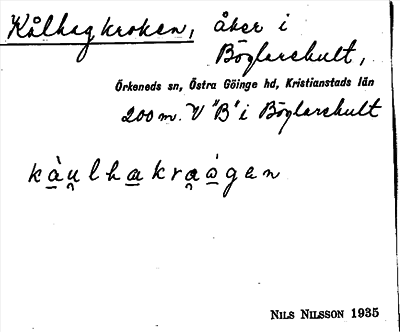 Kålhagkroken, åker i
Böglarehult,
Örkeneds sn, Östra Göinge hd, Kristianstads län
200 m. V "B" i Böglarehult
kàu̯lhakra̯ágen
NILS NILSSON 1935